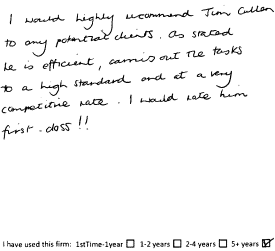 I would highly recommend Jim Cullen
to any potential clients. As stated
he is efficient, carries out the tasks
to a high standard and at a very
competitive rate. I would rate him
first-class!!
I have used this firm: 1stTime-1year ☐ 1-2 years ☐ 2-4 years ☐ 5+ years ☑